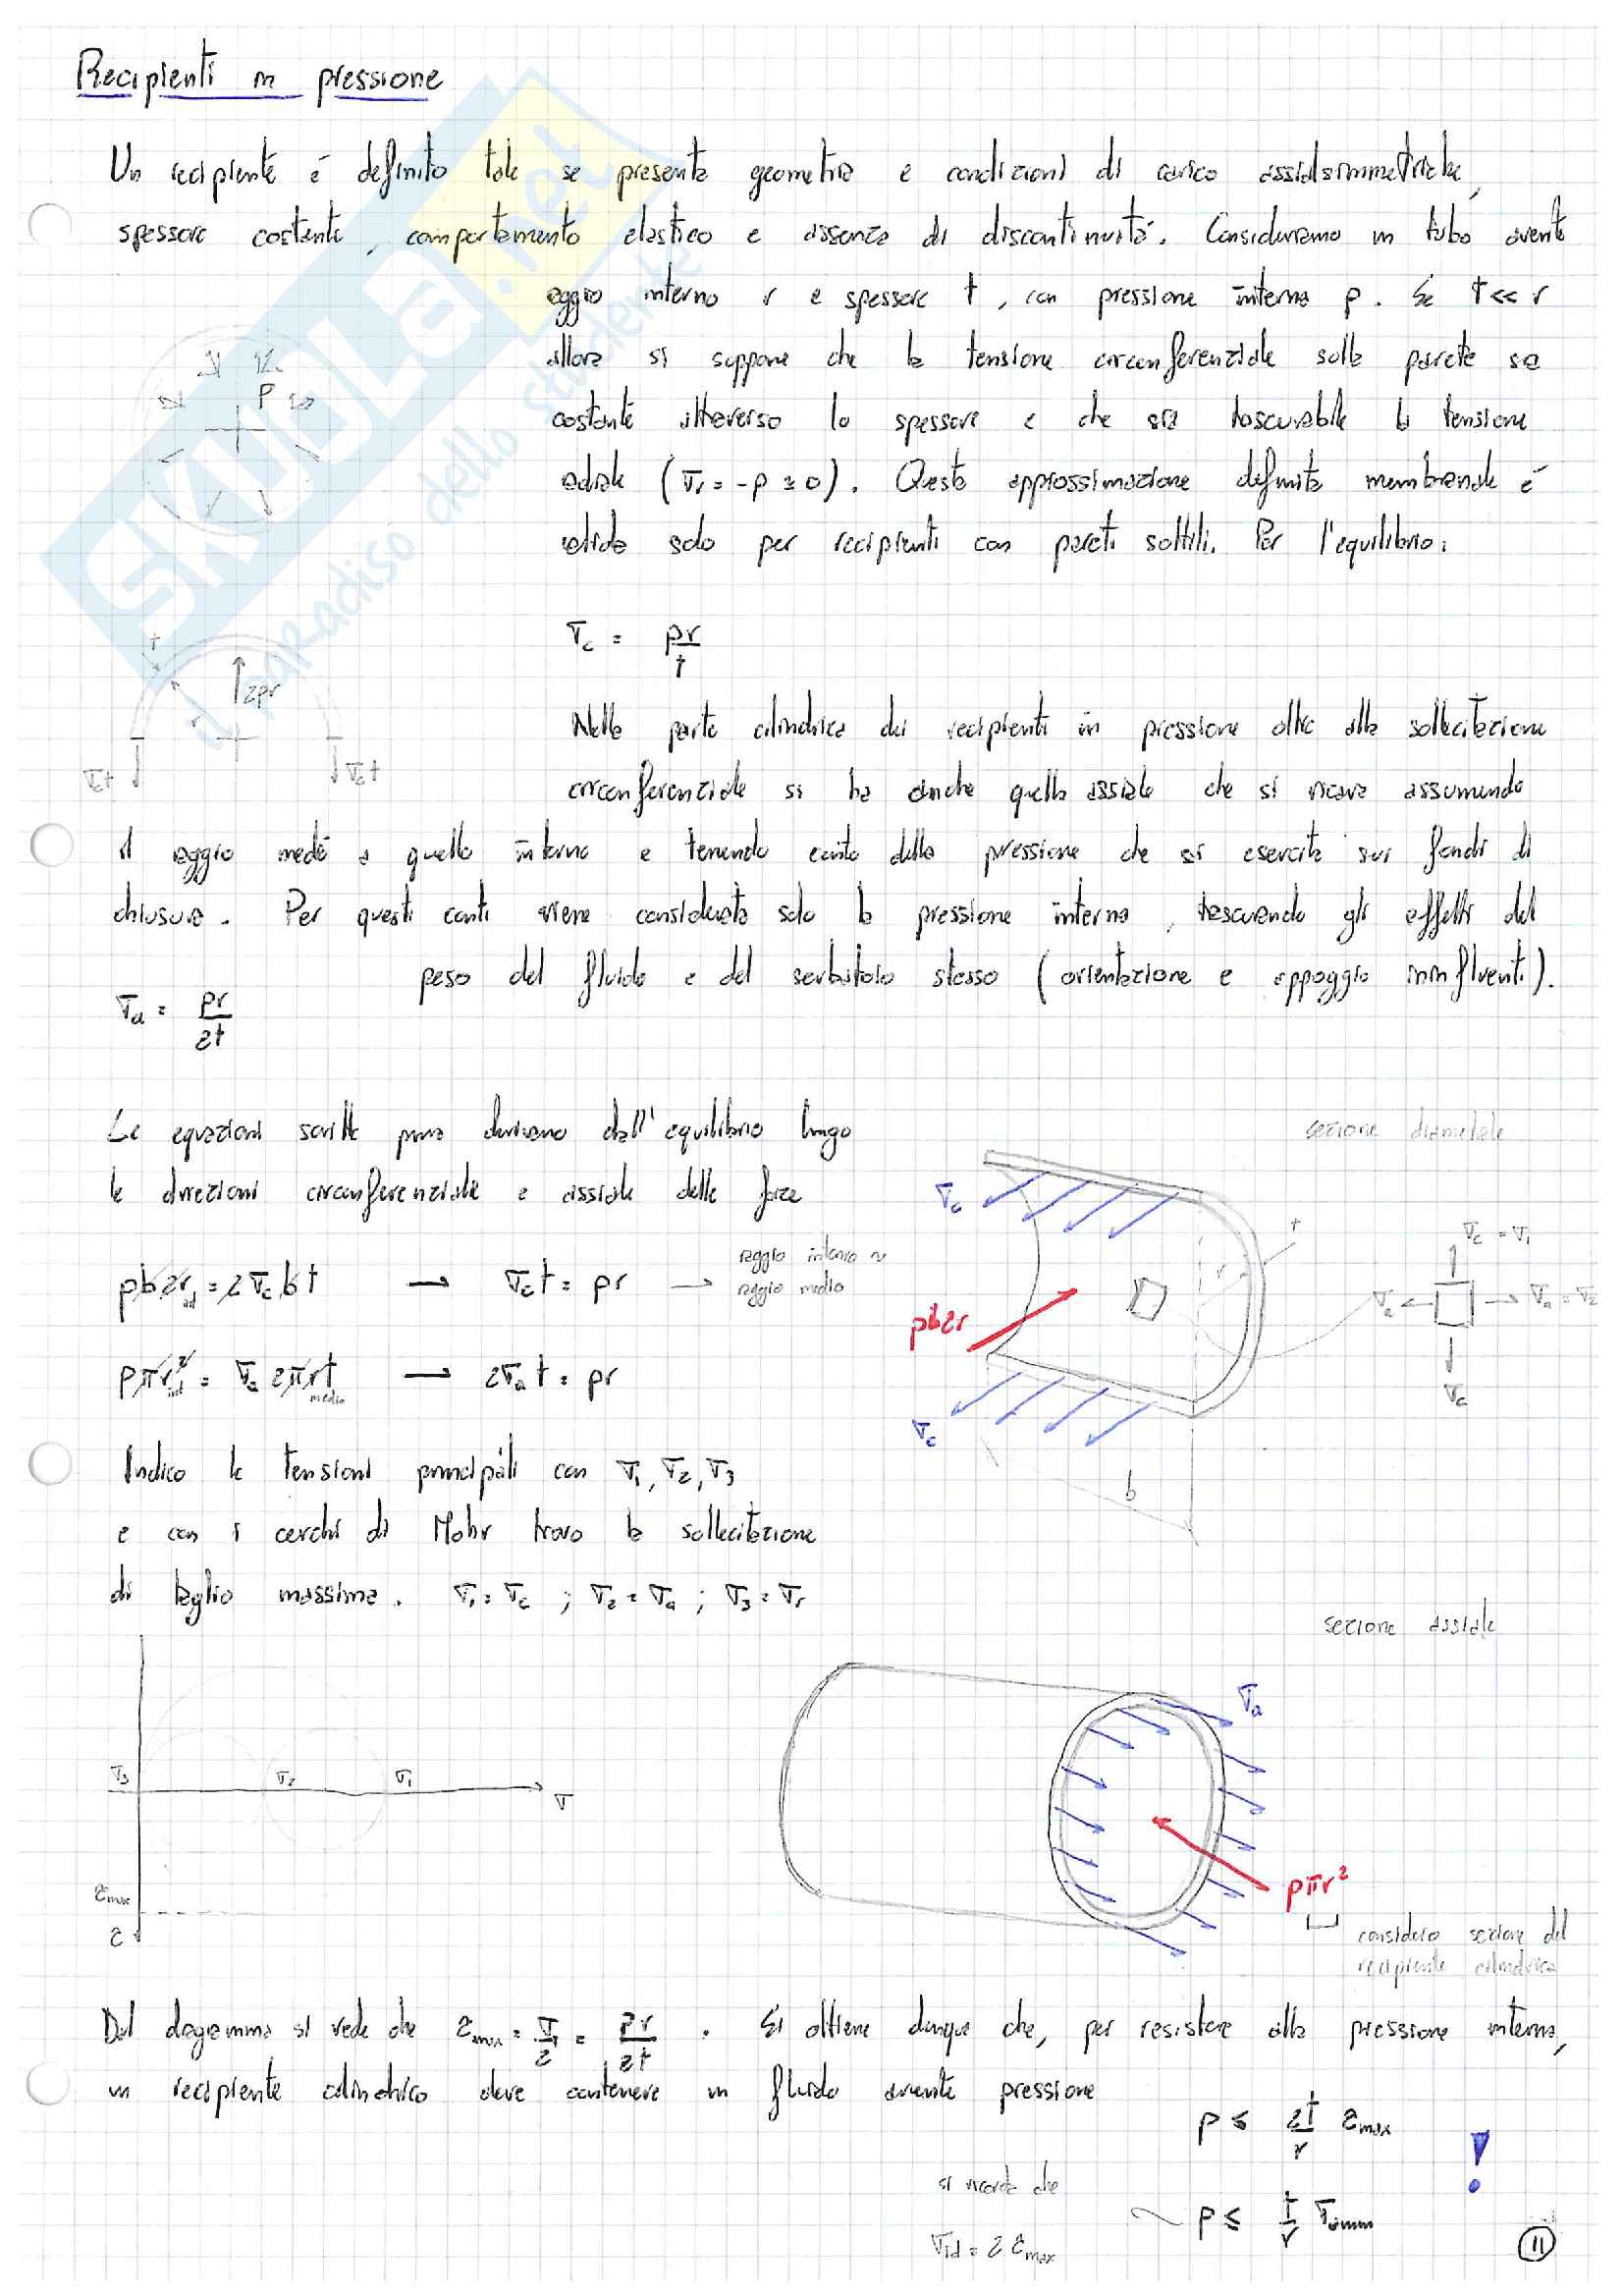 Recipienti in pressione
Un recipiente è definito tale se presenta geometria e condizioni di carico assialsimmetriche,
spessore costante, comportamento elastico e assenza di discontinuità. Consideriamo un tubo avente
raggio interno r e spessore t, con pressione interna p. Se t << r
allora si suppone che la tensione circonferenziale sulla parete sia
costante attraverso lo spessore e che sia trascurabile la tensione
radiale (σr = -p ≅ 0). Questa approssimazione definita membranale è
valida solo per recipienti con pareti sottili. Per l'equilibrio:
P
σc = pr/t
t
2pr
r
σct
σct
Nella parte cilindrica dei recipienti in pressione oltre alla sollecitazione
circonferenziale si ha anche quella assiale che si ricava assumendo
il raggio medio = quello interno e tenendo conto della pressione che si esercita sui fondi di
chiusura. Per questi conti viene considerata solo la pressione interna, trascurando gli effetti del
peso del fluido e del serbatoio stesso (orientazione e appoggio ininfluenti).
σa = pr/2t
Le equazioni scritte prima derivano dall'equilibrio lungo
le direzioni circonferenziale e assiale delle forze
sezione diametrale
pb2r int = 2σc b t → σc t = pr → raggio interno ~
raggio medio
pπr²int = σa 2πrt medio → 2σa t = pr
σc
pb2r
σc
r
t
b
σc = σ1
σa
σa = σ2
σc
Indico le tensioni principali con σ1, σ2, σ3
e con i cerchi di Mohr trovo la sollecitazione
di taglio massima. σ1 = σc ; σ2 = σa ; σ3 = σr
sezione assiale
σ3
σ2
σ1
σ
τmax
τ
σa
pπr²
considero sezione del
recipiente cilindrica
Dal diagramma si vede che τmax = σ1/2 = pr/2t . Si ottiene dunque che, per resistere alla pressione interna,
un recipiente cilindrico deve contenere un fluido avente pressione
p ≤ 2t/r τmax
!
si ricorda che
σid = 2 τmax
~ p ≤ t/r σamm
11
SKUOLA.net
il paradiso dello studente